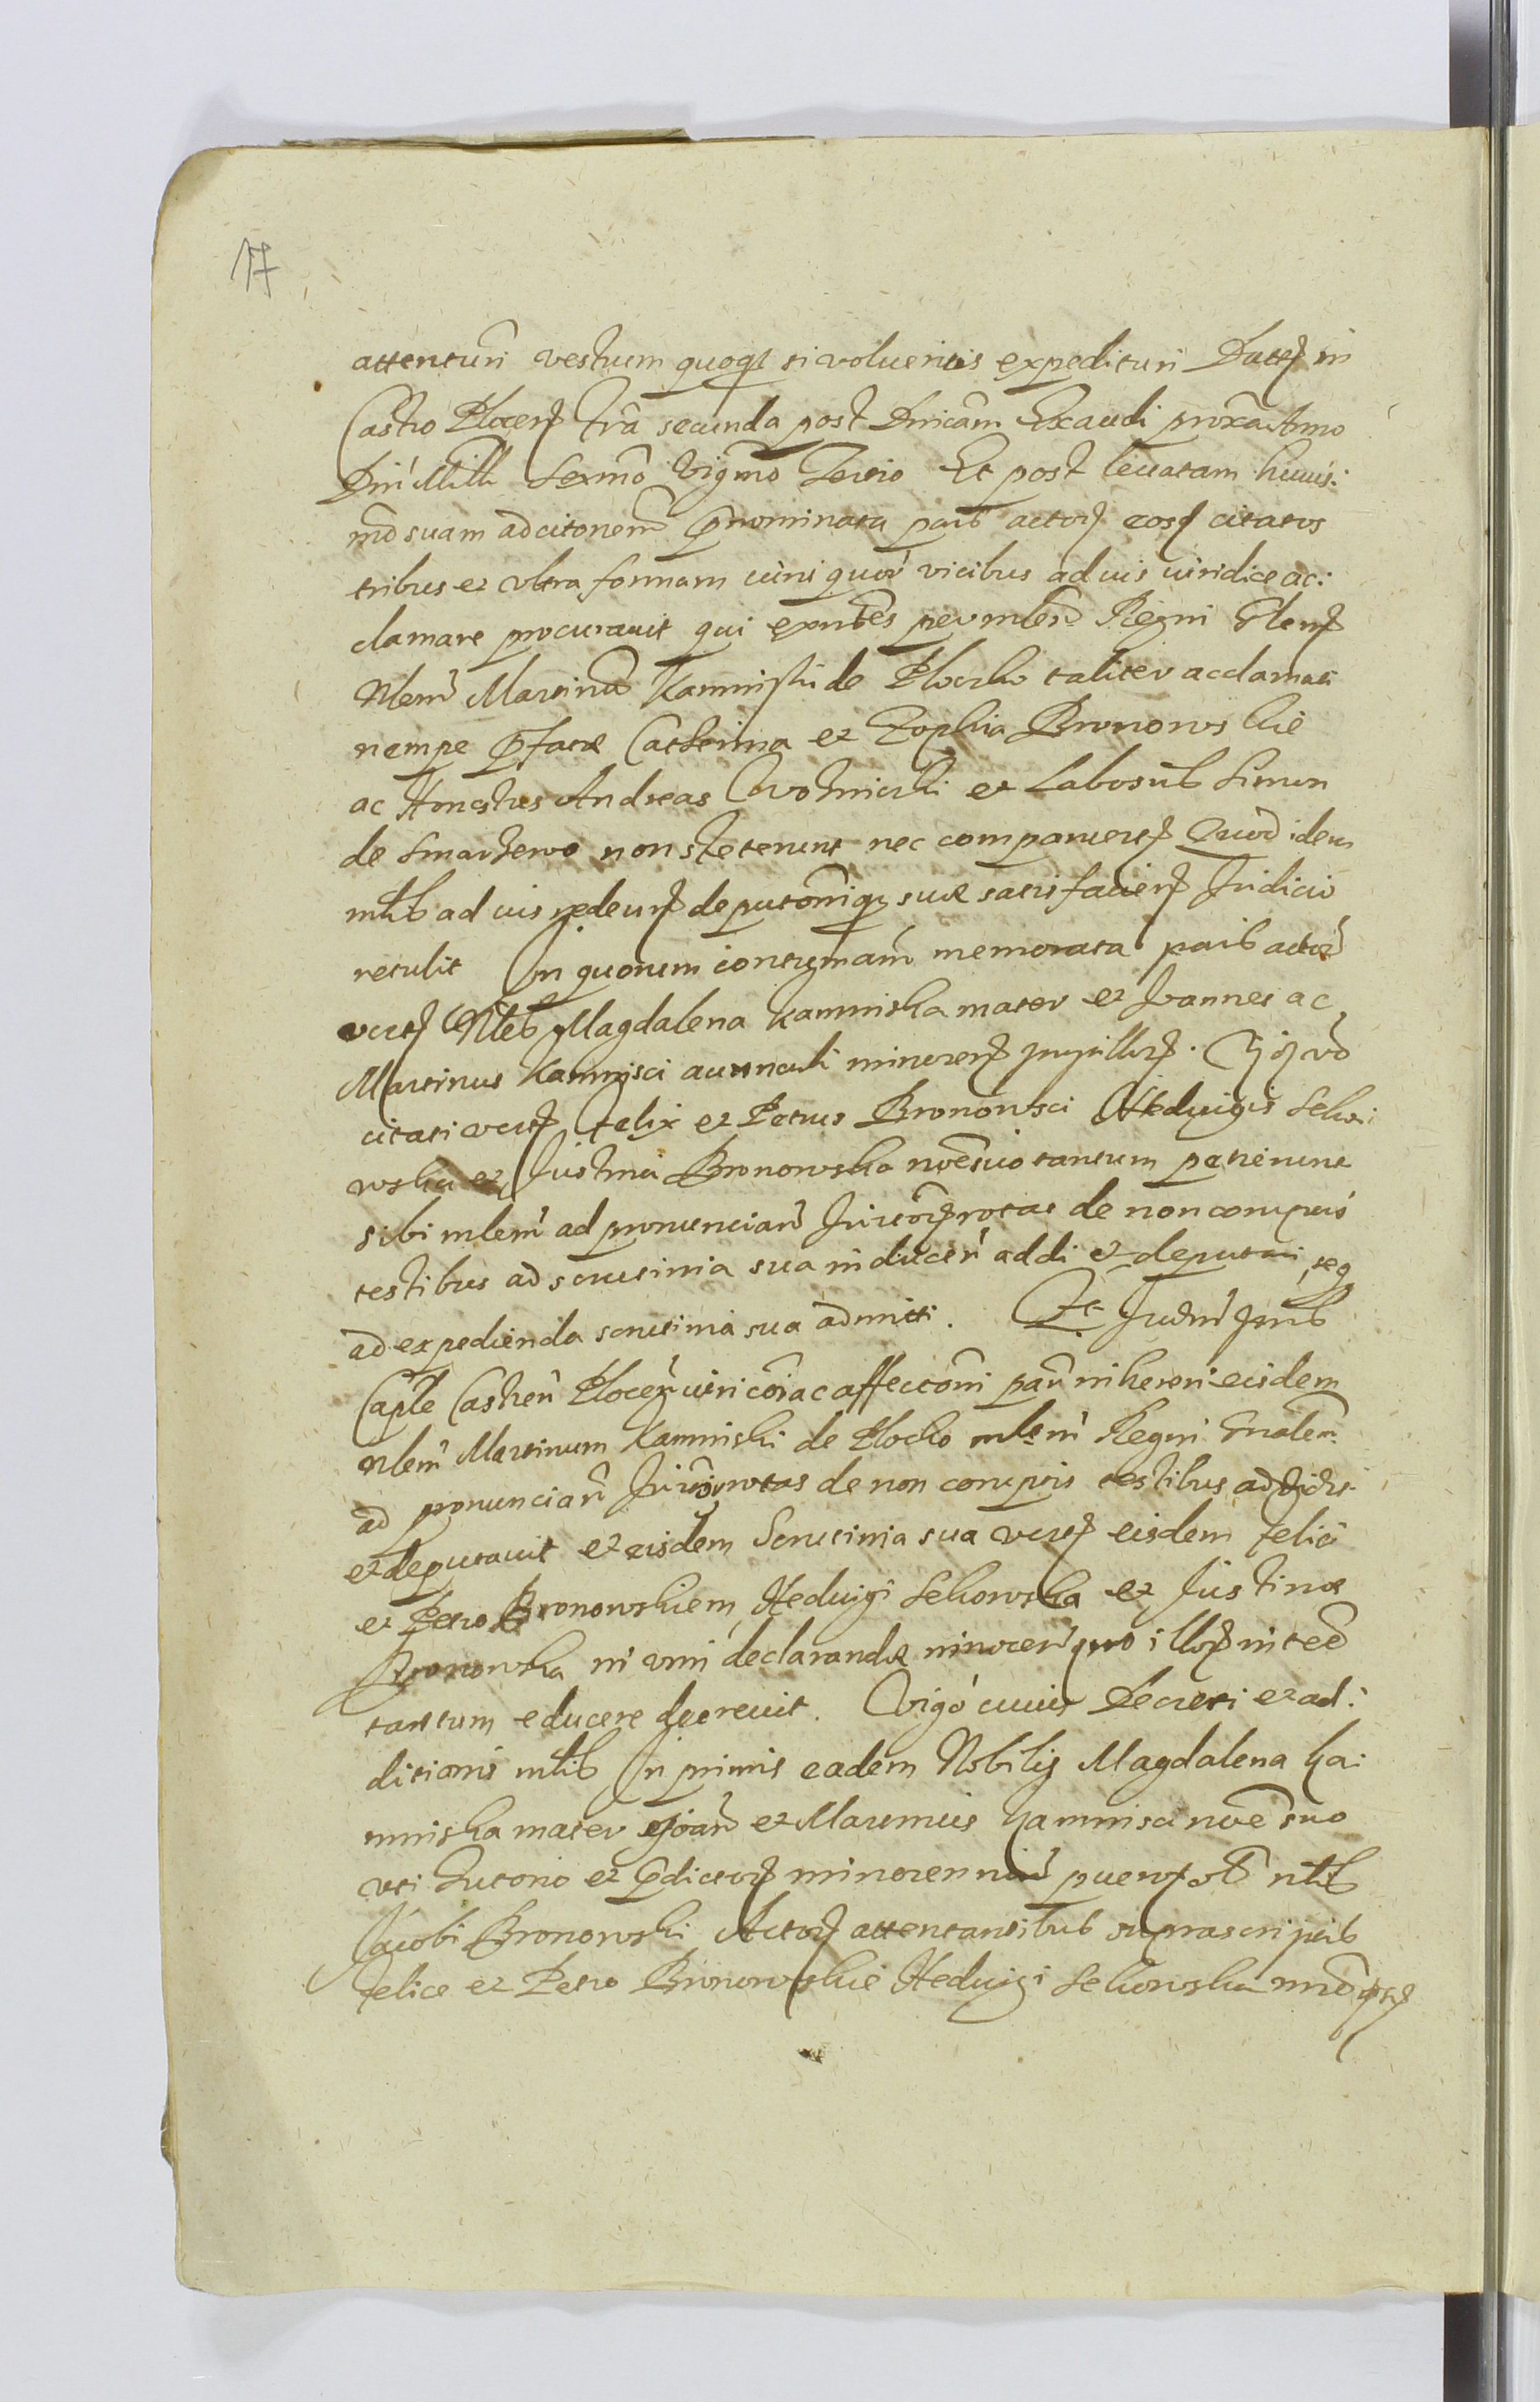 17
attenturi vestrum quoq si volueritis expedituri Datt in
Castro Plocen fria secunda post Dnicam Exaudi proxa Anno
Dni Mill Sexmo Vigmo Tertio Et post levatam huius:
mod suam adcitonem pnominata pars actor eosq citatos
tribus et vltra formam iuris quor vicibus ad iuis iuridice ac:
clamare procurauit qui exntes per mlem Regni Glem
Nlem Martinu Kamninski de Plocko taliter acclamati
nempe pfatae Catherina et Zophia Bronowskie
ac Honestus Andreas et Labosus Simon
de non steterunt nec comparuert Quod idem
mlis ad iuis redeunt deputoniq suae satisfaciens Judicio
retulit In quorum contumam memorata pars actor
vert Nlis Magdalena Kaminska mater et Joannes ac
Martinus Kaminsci auunculi minorens pupillor. vo
citati vert Felix et Petrus Bronowsci Heduigis Seko:
wska et Justina Bronowska noe suo tantum petierunt
sibi mlem ad pronunciand rotas de non corruptis
testibus ad scrutinia sua inducen addi et deputari seq
ad expedienda scrutinia sua admitti. Et Judm Pns
Captle Castren Plocen iuri coi ac affectoni par inheren eisdem
Nlem Martinum Kaminski de Plocko mlem Regni Gnalem
ad pronunciand rotas de non corruptis testibus addidit
et deputauit et eisdem Scrutinia sua vert eisdem Felici
et Petro Bronowskiem Heduigi Sekowska et Justinae
Bronowska in vim declarandae innocen quo illor in
tantum educere decreuit. Vigo cuius Decreti et ad:
ditionis mlis In primis eadem Nobilis Magdalena Ka:
minska mater et Martinus Kaminsci noe suo
vti Tutorio et pdictor minorennium pueror nlis
Jacobi Bronowski Actor attentantibus suprascriptis
Felice et Petro Bronowskie Heduigi Sekowska